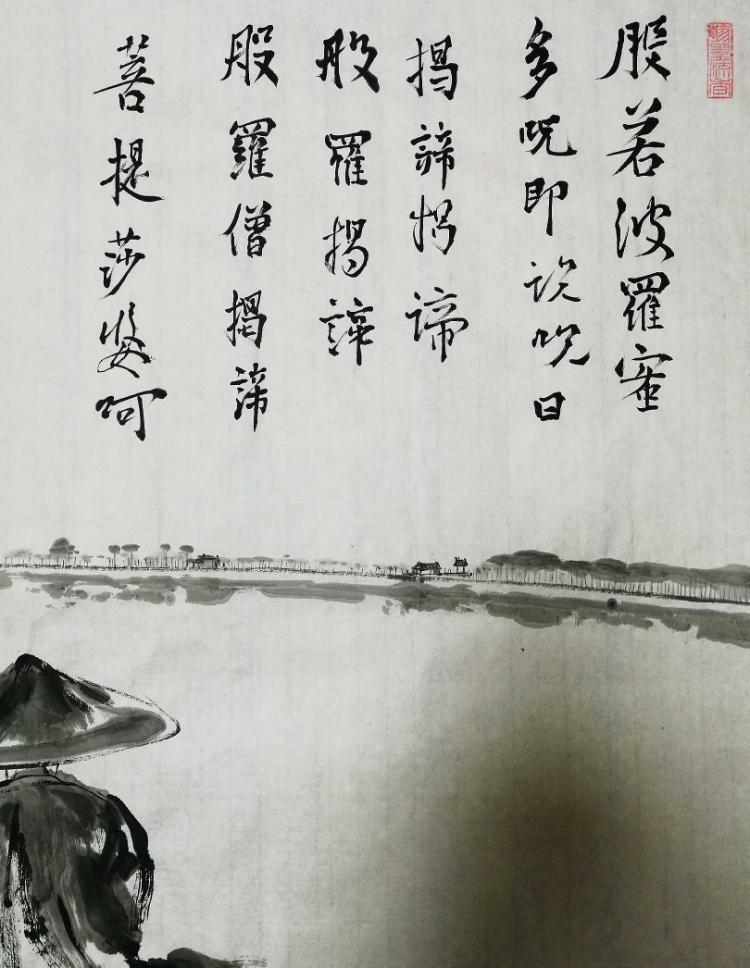 般若波羅蜜
多呪即说呪曰
揭諦揭諦
般羅揭諦
般羅僧揭諦
菩提莎婆呵